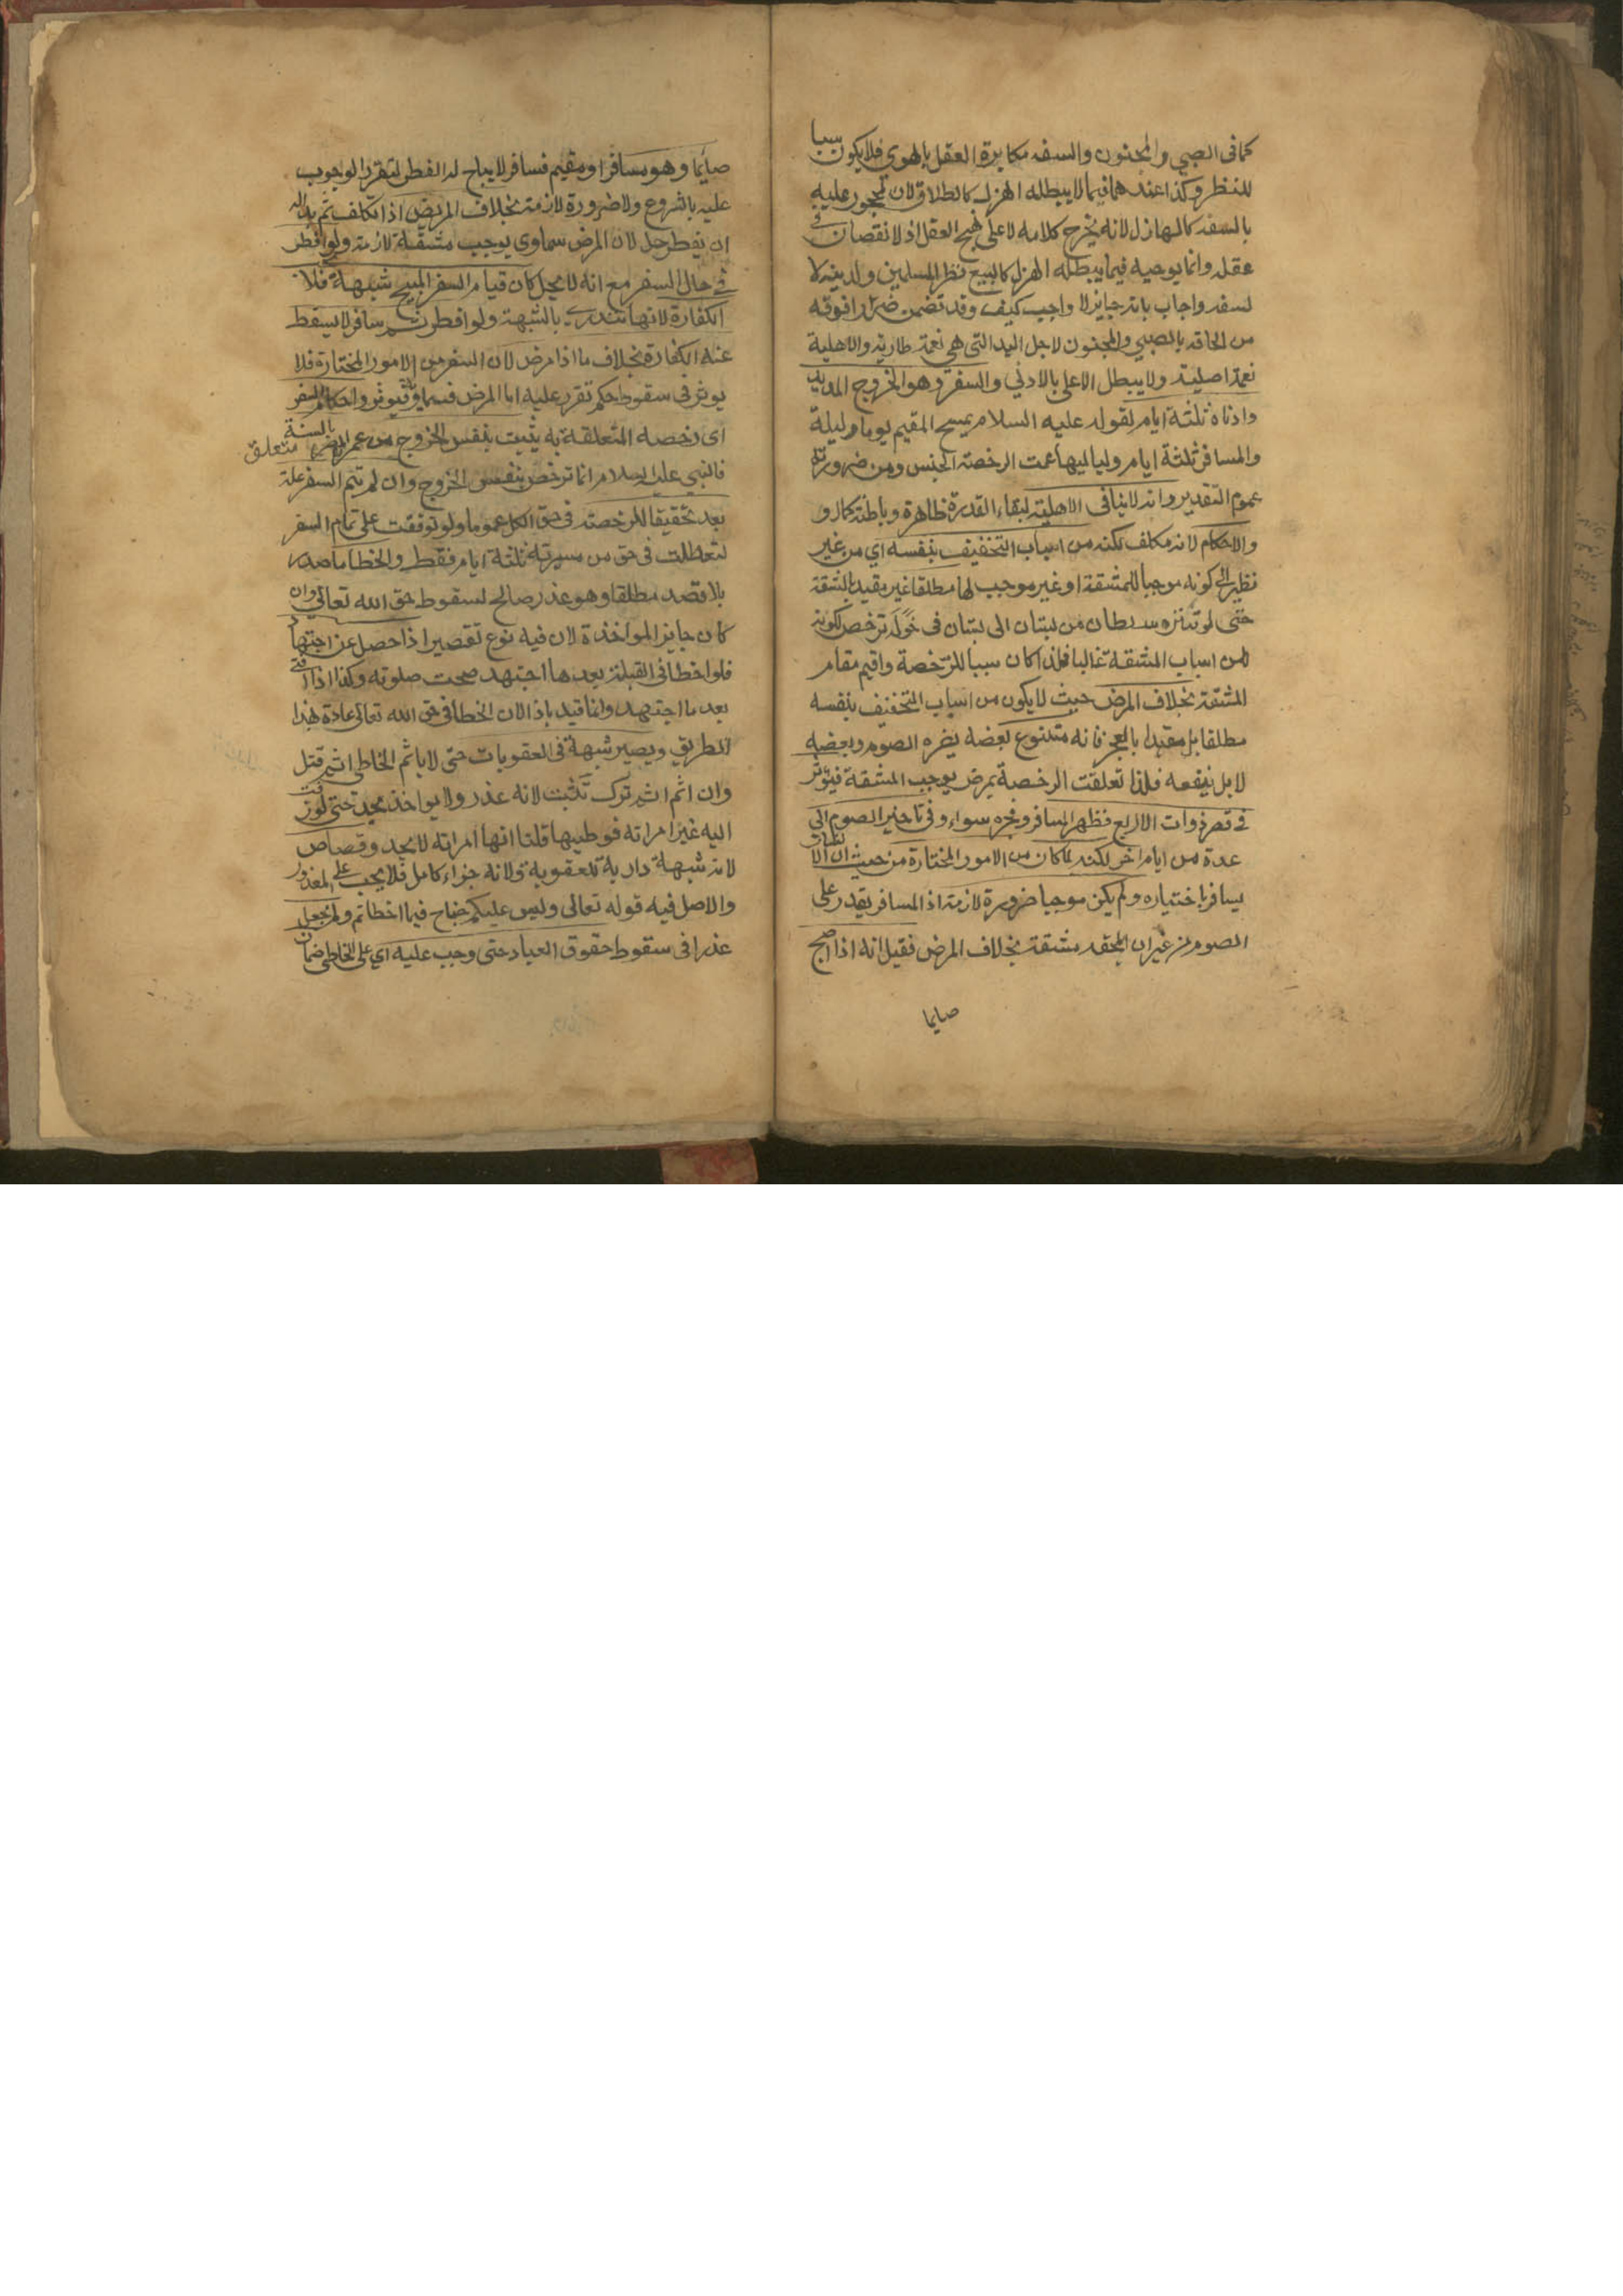 كما فى الصبي والمجنون والسفه مكابرة العقل بالهوى فلا يكون سببا
للنظر وكذا عندهما فيما لا يبطله الهزل كالطلاق لان المحجور عليه
بالسفه كالهازل لانه يخرج كلامه لا على نهج العقل اذ لا نقصان في
عقله وانما يوجبه فيما يبطله الهزل كالبيع نظرا للمسلمين ولدينه لا
لسفه واجاب بانه جايز لا واجب كيف وقد تضمن ضررا فوقه
من الحاقه بالصبي والمجنون لاجل اليد التى هي نعمة طارية والاهلية
نعمة اصلية ولا يبطل الاعلى بالادنى والسفر وهو الخروج المديد
وادناه ثلثة ايام لقوله عليه السلام يمسح المقيم يوما وليلة
والمسافر ثلثة ايام ولياليها عمت الرخصة الجنس ومن ضرورته
عموم التقدير وانه لا ينافى الاهلية لبقاء القدرة ظاهرة وباطنة كمالا و
والاحكام لانه مكلف لكنه من اسباب التخفيف بنفسه اي من غير
نظر الى كونه موجبا للمشقة او غير موجب لها مطلقا غير مقيد بالمشقة
حتى لو تنزه سلطان من بستان الى بستان فى خوله ترخص لكونه
من اسباب المشقة غالبا فلذا كان سببا للرخصة واقيم مقام
المشقة بخلاف المرض حيث لا يكون من اسباب التخفيف بنفسه
مطلقا بل مقيدا بالعجز فانه متنوع بعضه يضره الصوم وبعضه
لا بل ينفعه فلذا تعلقت الرخصة بمرض يوجب المشقة فيؤثر
في قصر ذوات الاربع فظهر المسافر وفجره سواء وفى تاخير الصوم الى
عدة من ايام اخر لكنه لما كان من الامور المختارة من حيث ان
يسافر باختياره ولم يكن موجبا ضرورة لازمة اذ المسافر يقدر على
الصوم من غير ان يلحقه مشقة بخلاف المرض فقيل انه اذا اصبح
صايما
صايما وهو مسافر او مقيم فسافر لا يباح له الفطر لتقرر الوجوب
عليه بالشروع ولا ضرورة لازمة بخلاف المريض اذا تكلف ثم بدا له
ان يفطر حل لان المرض سماوي يوجب مشقة لازمة ولو افطر
في حال السفر مع انه لا يحل كان قيام السفر المبيح شبهة فلا
الكفارة لانها تندرئ بالشبهة ولو افطر ثم سافر لا يسقط
عنه الكفارة بخلاف ما اذا مرض لان السفر من الامور المختارة فلا
يوثر فى سقوط حكم تقرر عليه اما المرض فسماوي فيوثر واحكام السفر
اى رخصه المتعلقة به يثبت بنفس الخروج من عمران المصر بالسنة متعلق
فالنبي عليه السلام انما ترخص بنفس الخروج وان لم يتم السفر علة
بعد تحقيقا للرخصة فى حق الكل عموما ولو توقفت على تمام السفر
لتعطلت فى حق من مسيرته ثلثة ايام فقط والخطا ما صدر
بلا قصد مطلقا وهو عذر صالح لسقوط حق الله تعالى وان
كان جايز المواخذة لان فيه نوع تقصير اذا حصل عن اجتهاد
فلو اخطا فى القبلة بعد ما اجتهد صحت صلوته وكذا اذا افتى
بعد ما اجتهد وانما قيد باذا لان الخطا فى حق الله تعالى عادة لهذا
الطريق ويصير شبهة فى العقوبات حتى لا ياثم الخاطى اثم قتل
وان اثم اثم ترك تثبت لانه عذر ولا يواخذ بحد حتى لو زفت
اليه غير امراته فوطيها قلنا انها امراته لا يحد وقصاص
لانه شبهة دارية للعقوبة ولانه جزاء كامل فلا يجب على المعذور
والاصل فيه قوله تعالى وليس عليكم جناح فيما اخطاتم ولم يجعل
عذرا فى سقوط حقوق العباد حتى وجب عليه اي على الخاطى ضمان